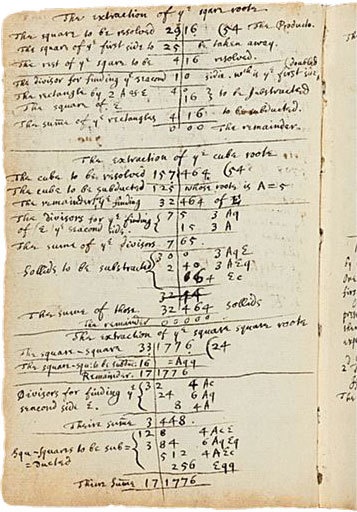 The extraction of yᵉ sqare roote
The square to be resolved 29 16 (54 The Producte.
The sqare of yᵉ first side to 25 be taken away.
The rest of yᵉ square to be 4 16 resolved.
The divisor for finding yᵉ seacond 10 side. wᶜʰ is yᵉ first side (doubled
The rectangle by 2 A as E 4 0 } to be substracted
The square of E 16
The sume of yᵉ rectangles 4 16 to be subducted.
0 00 The remainder.
The extraction of yᵉ cube roote
The cube to be resolved 157 464 (54
The cube to be subducted 125 whose roote is A=5
The remainder for yᵉ finding 32 464 of E
The divisors for yᵉ finding { 7 5 3 Aq
of E yᵉ seacond side { 15 3 A
The sume of yᵉ divisors 7 65.
Sollids to be substracted { 30 0 3 AqE
2 40 3 AEq
64 Ec
32 44
The sume of those 32 464 sollids
The remainder 00000
The extraction of yᵉ square square roote
The square-square 33 1776 (24
The square-sqa: to be subtra: 16 =Aqq
Remainder. 17 1776
Divisors for finding yᵉ { 3 2 4 Ac
seacond side E. { 24 6 Aq
8 4 A
Theire sume 3 448.
12 8 4 AcE
Squ-squares to be sub= { 3 84 6 AqEq
=ducted 512 4 AEc
256 Eqq
Thire sume 17 1776